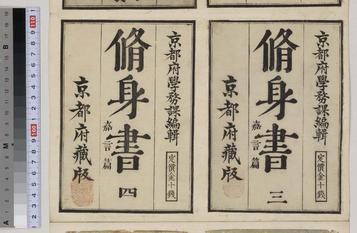 京都府學務課編輯
定價金十錢
脩身書
嘉言篇
三
京都府藏版
京都府學務課編輯
定價金十錢
脩身書
嘉言篇
四
京都府藏版